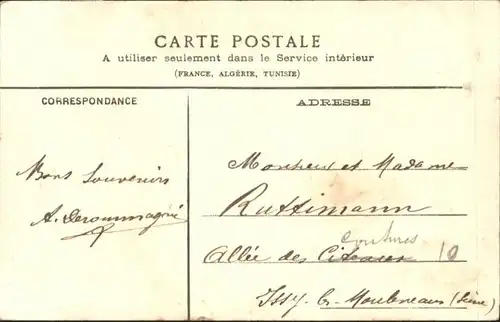 CARTE POSTALE
A utiliser seulement dans le Service intérieur
(FRANCE, ALGÉRIE, TUNISIE)
CORRESPONDANCE
ADRESSE
Bons Souvenirs
A.
Monsieur et Madame
Ruttimann
Allée des 10
Issy les Moulineaux (Seine)